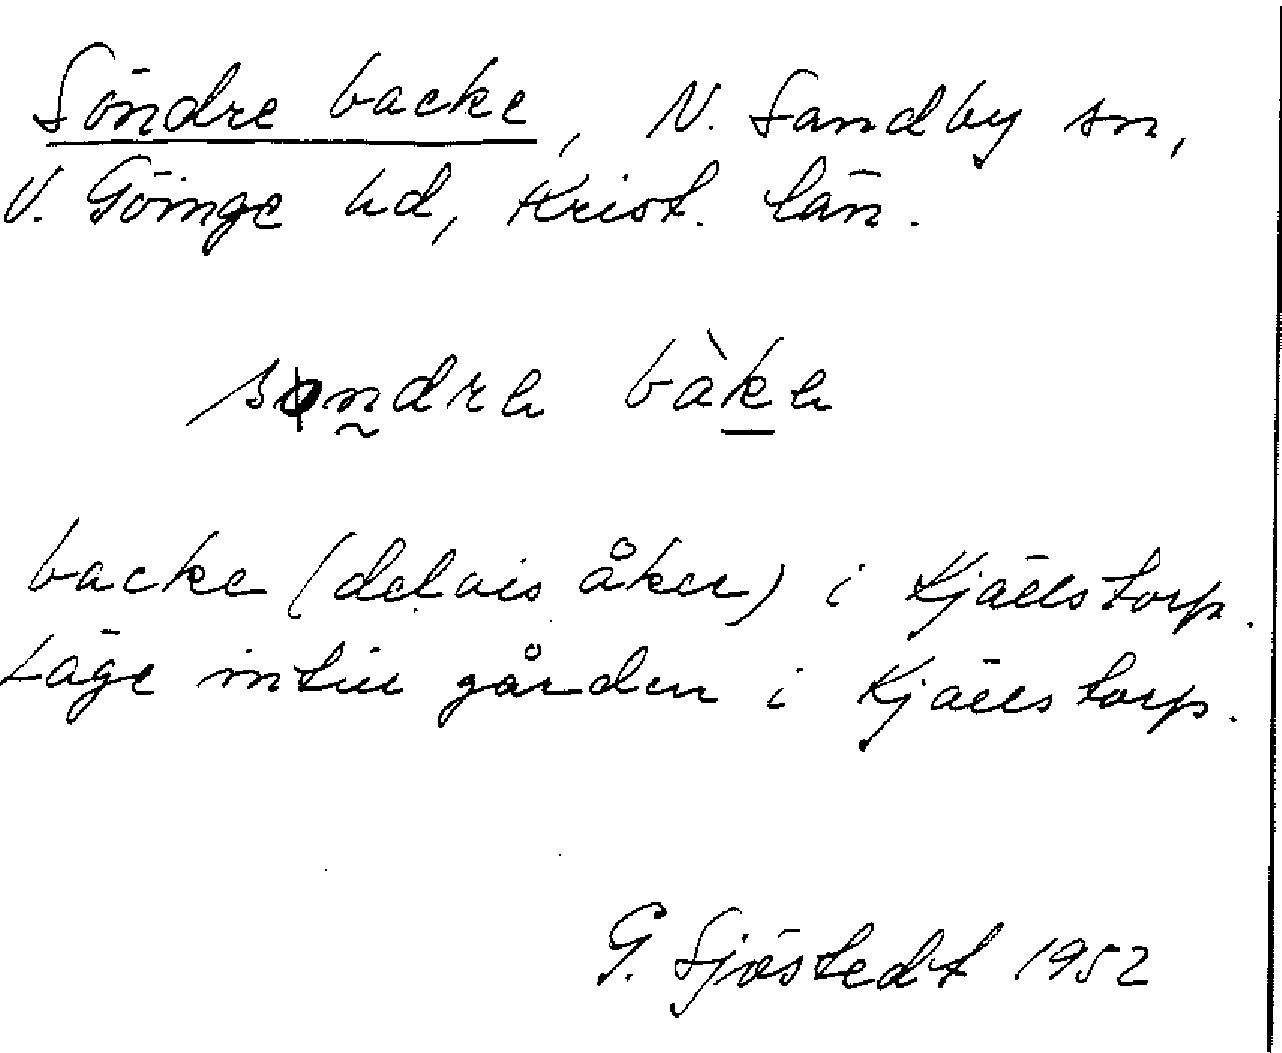 Söndre backe, N. Sandby sn,
V. Göinge hd, Krist. län.
backe (delvis åker) i Kjällstorp.
Läge intill gården i Kjällstorp.
G. Sjöstedt 1952